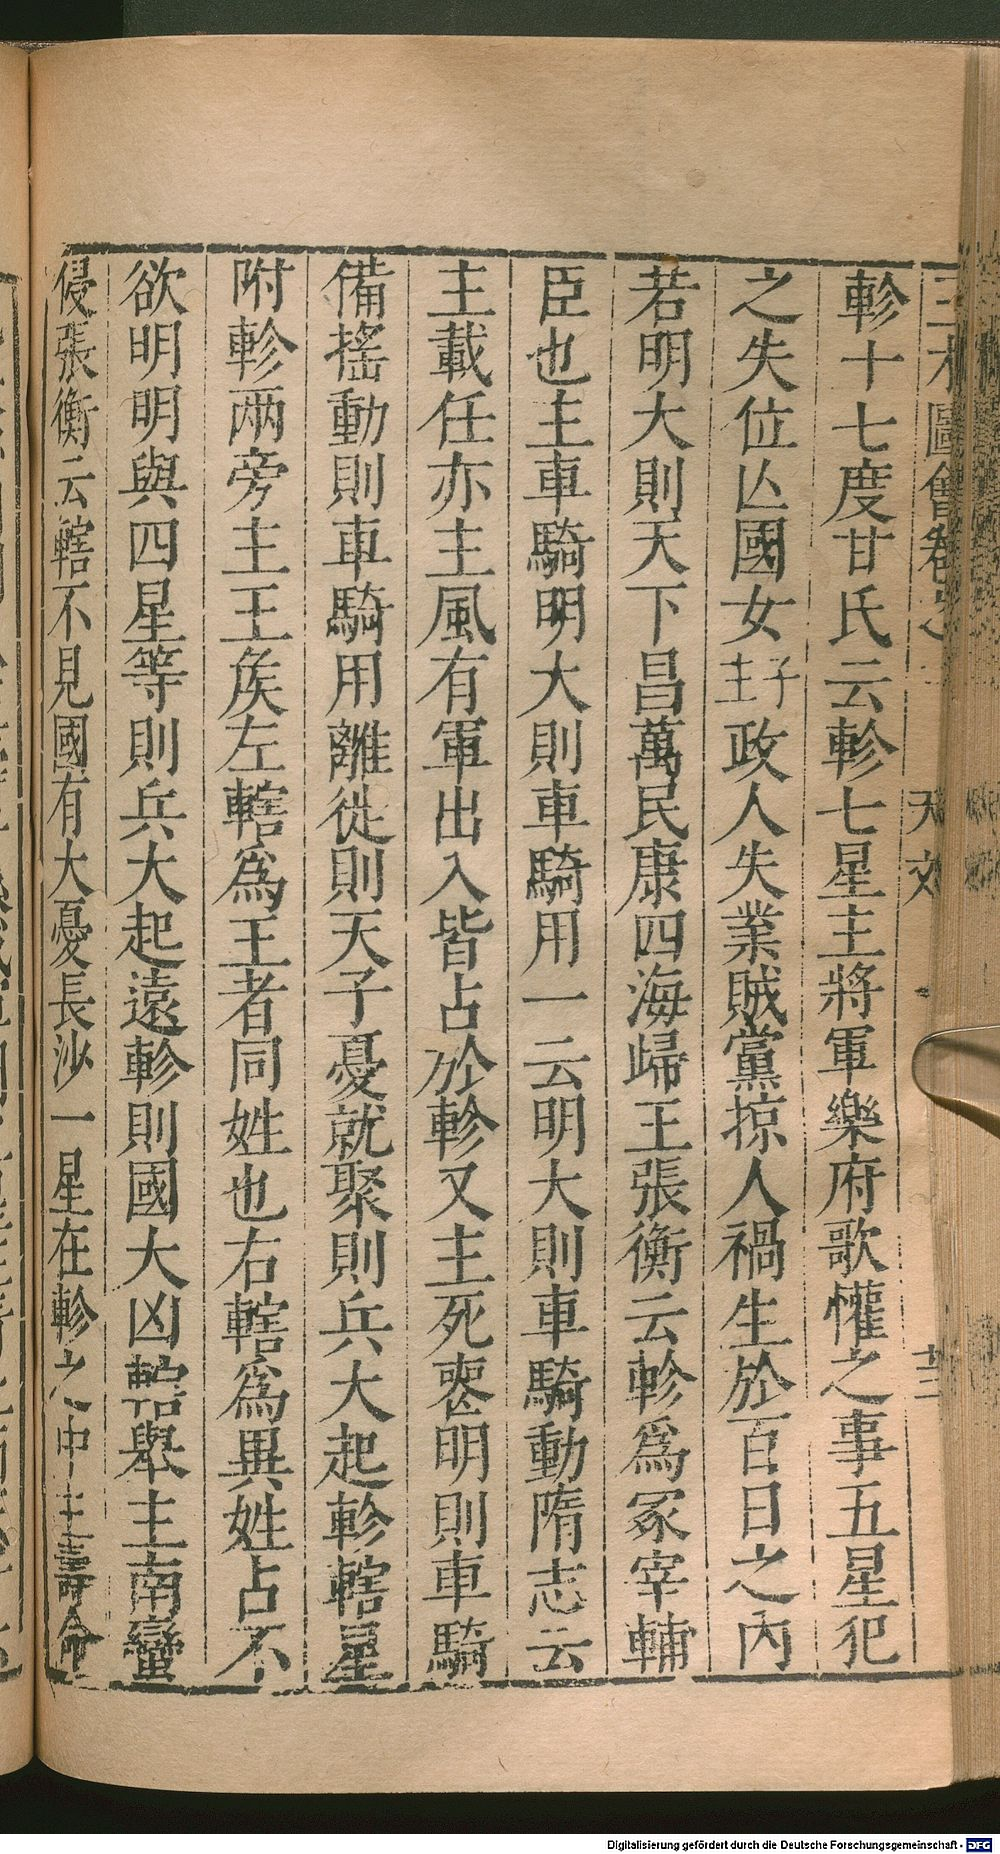 三才圖會卷之
天文
軫十七度甘氏云軫七星主將軍樂府歌懽之事五星犯
之失位亾國女主子政人失業賊黨掠人禍生於百日之內
若明大則天下昌萬民康四海歸王張衡云軫爲冢宰輔
臣也主車騎明大則車騎用一云明大則車騎動隋志云
主載任亦主風有軍出入皆占於軫又主死喪明則車騎
備搖動則車騎用離徙則天子憂就聚則兵大起軫轄星
附軫兩旁主王矦左轄爲王者同姓也右轄爲異姓占不
欲明明與四星等則兵大起遠軫則國大凶轄舉主南蠻
侵張衡云轄不見國有大憂長沙一星在軫之中主壽命
Digitalisierung gefördert durch die Deutsche Forschungsgemeinschaft - DFG